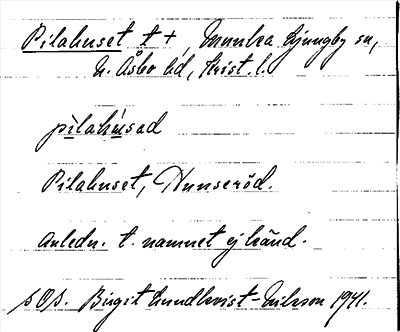 Pilahuset t +, Munka Ljungby sn,
N. Åsbo hd, Krist. l.
pìlahúsad
Pilahuset, Hunseröd.
Anledn. t. namnet ej känd.
s Os. Birgit Lundkvist-Nilsson 1941.